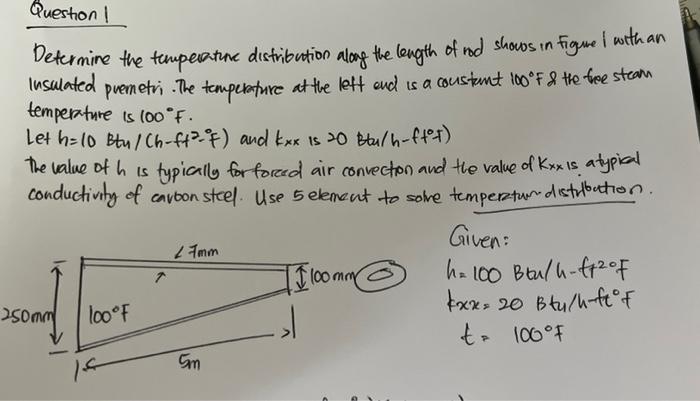 Question 1
Determine the temperature distribution along the length of rod shows in Figure 1 with an
Insulated puemetri. The temperature at the left end is a constant 100°F & the free steam
temperature is 100°F.
Let h=10 Btu/(h-ft²-°F) and kxx is 20 Btu/h-ft°F)
The value of h is typically for forced air convection and the value of Kxx is a typical
conductivity of carbon steel. Use 5 element to solve temperature distribution.
Given:
h= 100 Btu/h-ft²°F
kxx= 20 Btu/h-ft°F
t= 100°F
7mm
100mm
250mm
100°F
5m